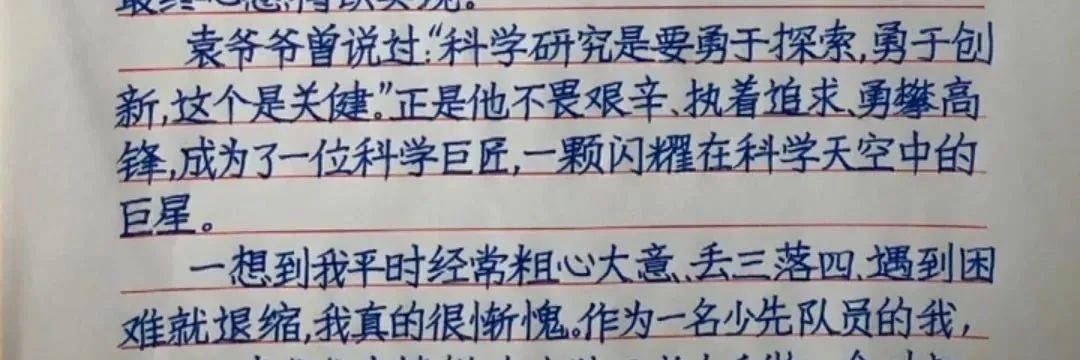 袁爷爷曾说过:“科学研究是要勇于探索,勇于创
新,这个是关健。”正是他不畏艰辛、执着追求、勇攀高
锋,成为了一位科学巨匠,一颗闪耀在科学天空中的
巨星。
一想到我平时经常粗心大意、丢三落四、遇到困
难就退缩,我真的很惭愧。作为一名少先队员的我,